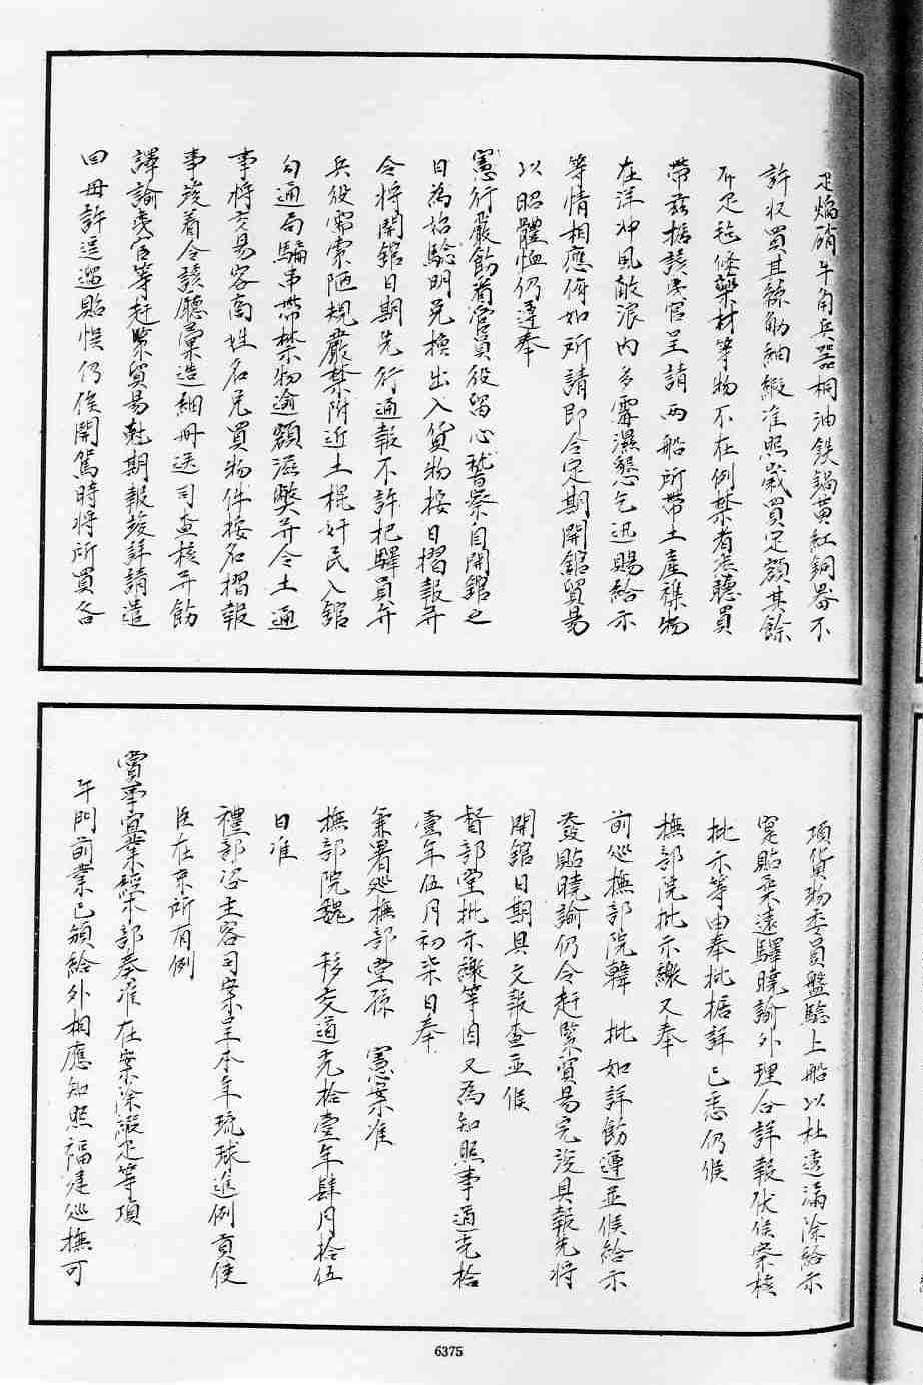 疋焔硝牛角兵器桐油鉄鍋黄紅銅器不
許收買其絲觔紬緞准照歲買定額其餘
布疋毡條藥材等物不在例禁者悉聽買
帶茲據該夷官呈請両船所帶土產襍物
在洋冲風敵浪內多霉濕懇乞迅賜給示
等情相應俯如所請即令定期開舘貿易
以昭體恤仍遵奉
憲行嚴飭着官員役留心稽察自開舘之
日為始驗明兌換出入貨物按日摺報并
令將開舘日期先行通報不許把驛員弁
兵役需索陋規嚴禁附近土棍奸民入舘
勾通局騙串帶禁物逾額滋獘并令土通
事將交易客商姓名兌買物件按名摺報
事竣着令該廳彙造細冊送司查核并飭
譯諭夷官等赶緊貿易尅期報竣詳請遣
回毋許逗遛貽悞仍俟開駕時將所買各
項貨物委員盤驗上船以杜透漏除給示
寔貼柔遠驛曉諭外理合詳報伏候察核
批示等由奉批據詳已悉仍候
撫部院批示繳又奉
前巡撫部院韓 批如詳飭遵並候給示
發貼曉諭仍令赶緊貿易完竣具報先將
開舘日期具文報查並候
督部堂批示繳等因又為知照事道光拾
壹年伍月初柒日奉
兼署巡撫部堂孫 憲案准
撫部院魏 移交道光拾壹年肆月拾伍
日准
禮部咨主客司案呈本年琉球進例貢使
臣在京所有例
賞奉宜業經本部奏准在案除緞疋等項
午門前業已頒給外相應知照福建巡撫可
6375